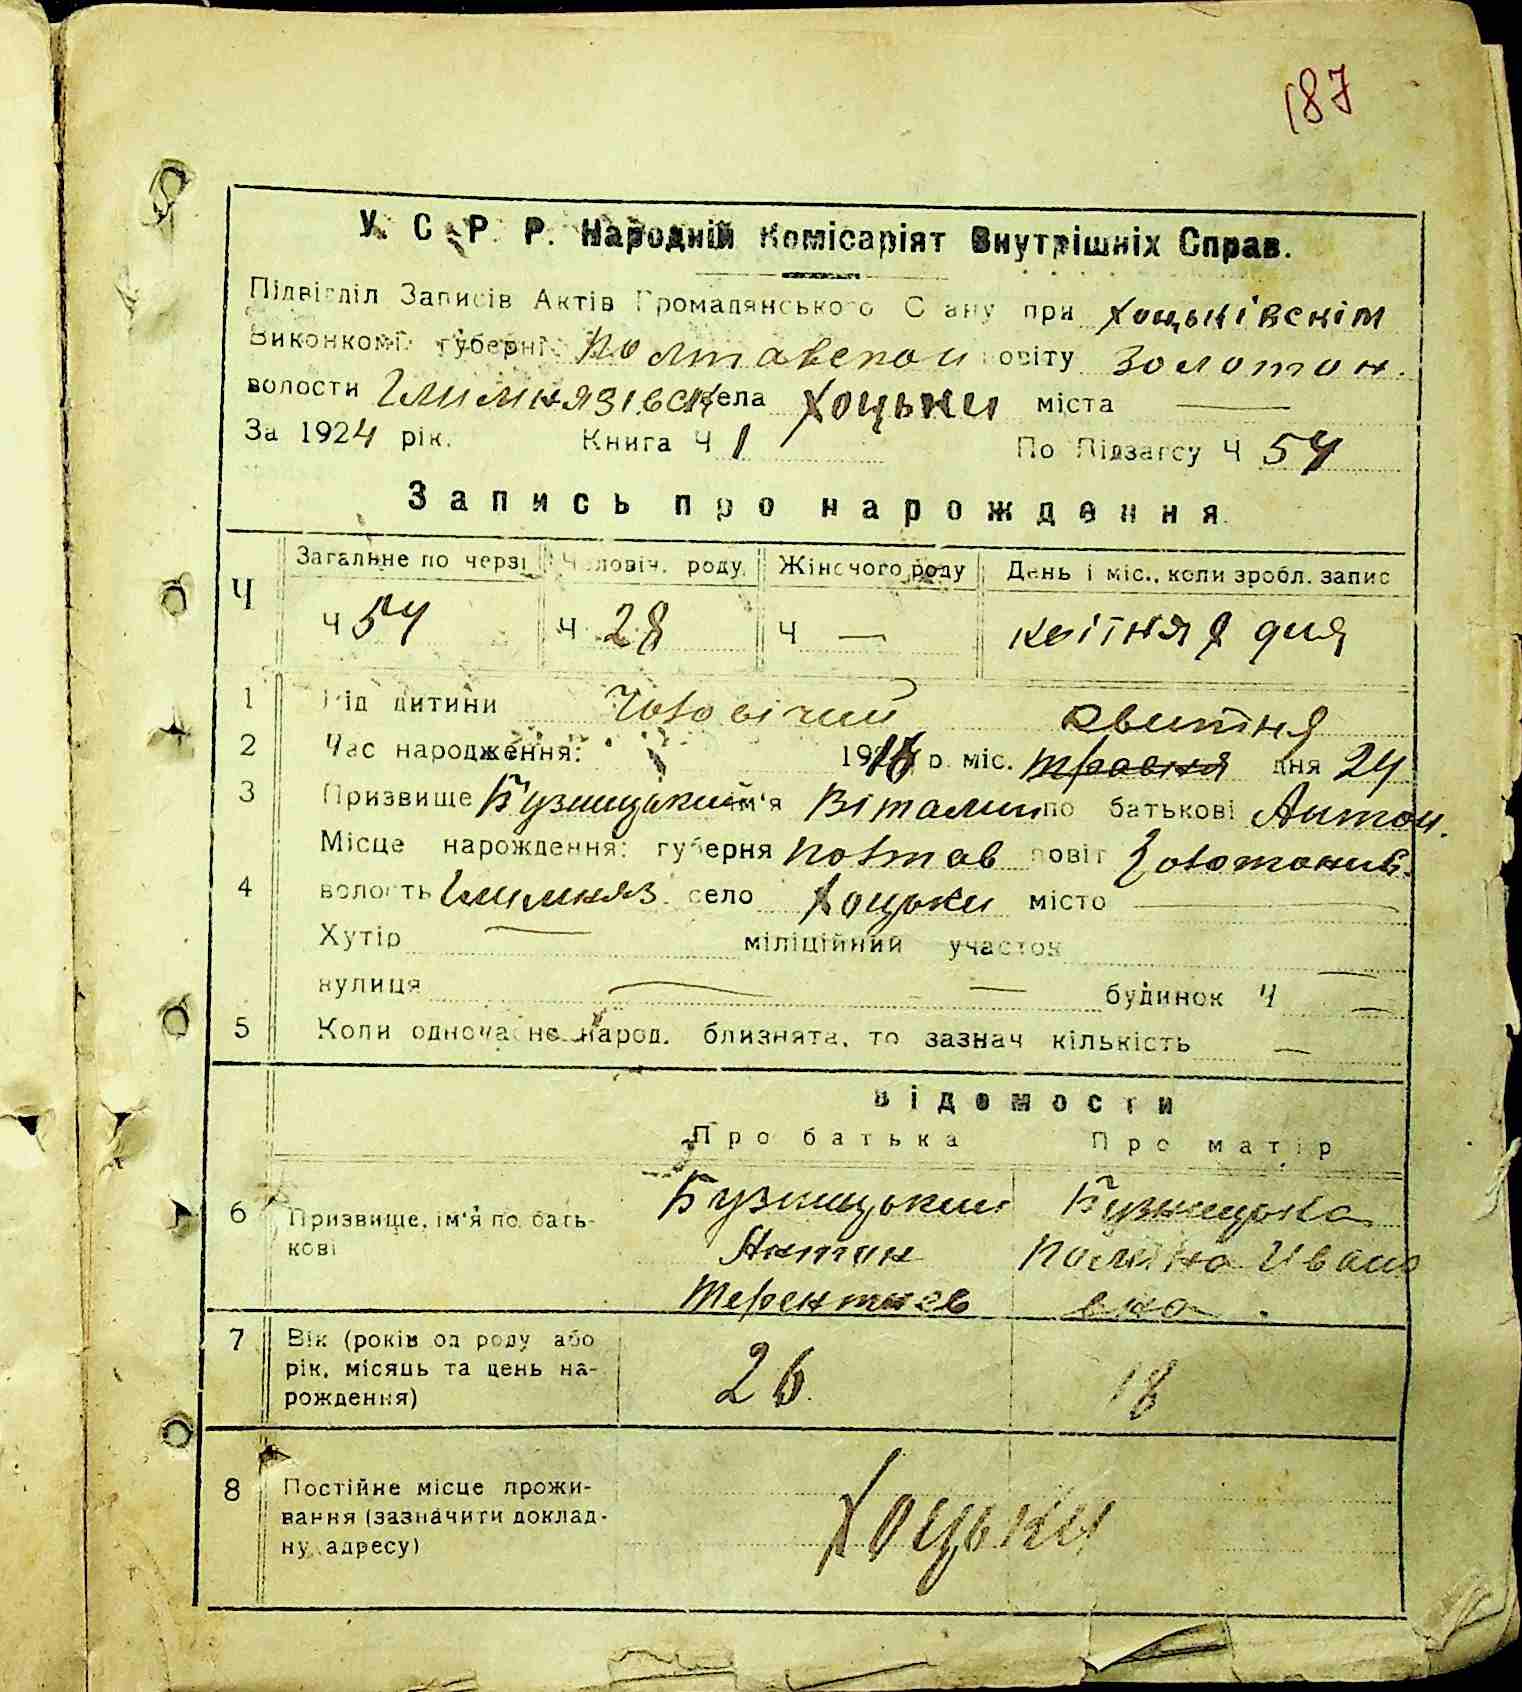 187
У. С. Р. Р. Народній Комісаріят Внутрішніх Справ.
Підвідділ Записів Актів Громадянського Стану при Хоцьківскім
Виконкомі губерні Полтавскои повіту Золотон.
волости Гельмязівск села Хоцьки міста —
За 1924 рік. Книга Ч 1 По Підзагсу Ч 54
Запись про нарождення
Ч Загальне по черзі Чоловіч. роду Жіночого роду День і міс., коли зробл. запис
Ч 54 Ч 28 Ч — квітня 8 дня
1 Рід дитини Чоловічий квитня
2 Час народження: р. міс. травня дня 24
3 Призвище ім'я Віталии по батькові Антон.
Місце нарождення: губерня Полтав повіт Золотонис.
4 волость село Хоцьки місто —
Хутір — міліційний участок —
вулиця — — будинок Ч —
5 Коли одночасне народ. близнята, то зазнач кількість —
Відомости
Про батька Про матір
6 Призвище, ім'я по бать-
кові
Антон Ивано
Терентиев вна.
7 Вік (років од роду або
рік, місяць та день на-
рождення)
26 18
8 Постійне місце прожи-
вання (зазначити доклад-
ну адресу)
Хоцьки